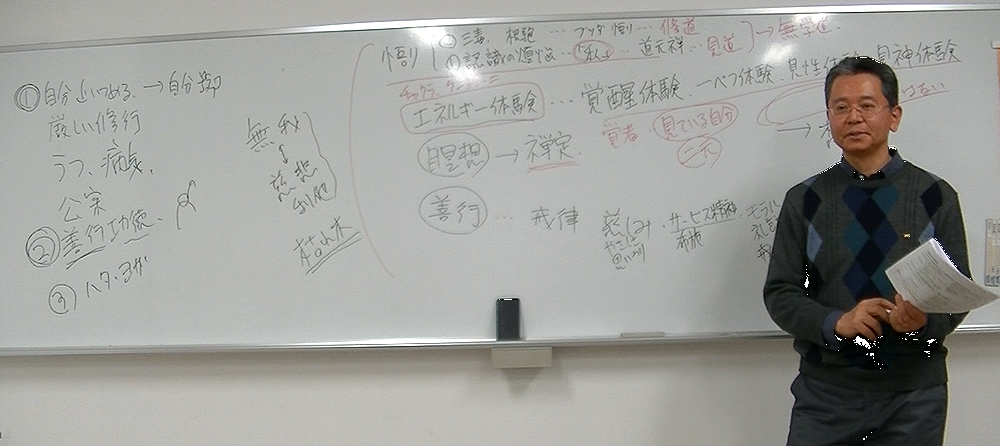 ① 自分追いつめる → 自分
厳しい修行
うつ、病気、
公案
② 善行功徳
③ ハタ・ヨガ
無我
↓
慈悲
利他
枯れ木
悟り
② 三毒、根絶 … ブッダ 悟り … 修道
① 認識の煩悩 … 「私」 … 道元禅 … 見道
→ 無学道
エネルギー体験 … 覚醒体験、一べつ体験、見性体験、見神体験
はない
瞑想 → 禅定
覚者・見ている自分
二元
善行 … 戒律 慈しみ・サービス精神
布施
モラル